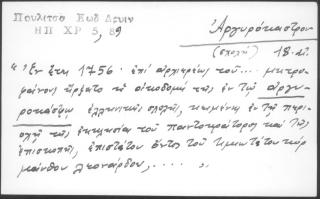 Πουλιτσα Εωδ Δρυιν
ΗΠ ΧΡ 5, 89
Ἀργυρόκαστρον
(σχολή) 18. αἰ.
"Ἐν ἔτει 1756. ἐπί ἀρχιερέως τοῦ... μητρο-
φαίνους ἤρξατο ἡ οἰκοδομή τῆς ἐν τῷ ἀργυ-
ροκάστρῳ ἑλληνικῆς σχολῆς, κειμένης ἐν τῇ περι-
οχῇ τῆς ἐκκλησίας τοῦ Παντοκράτορος καί τῆς
ἐπισκοπῆς, ἐπιστάτου ὄντος τοῦ τιμιωτάτου κύρ
μάνθου